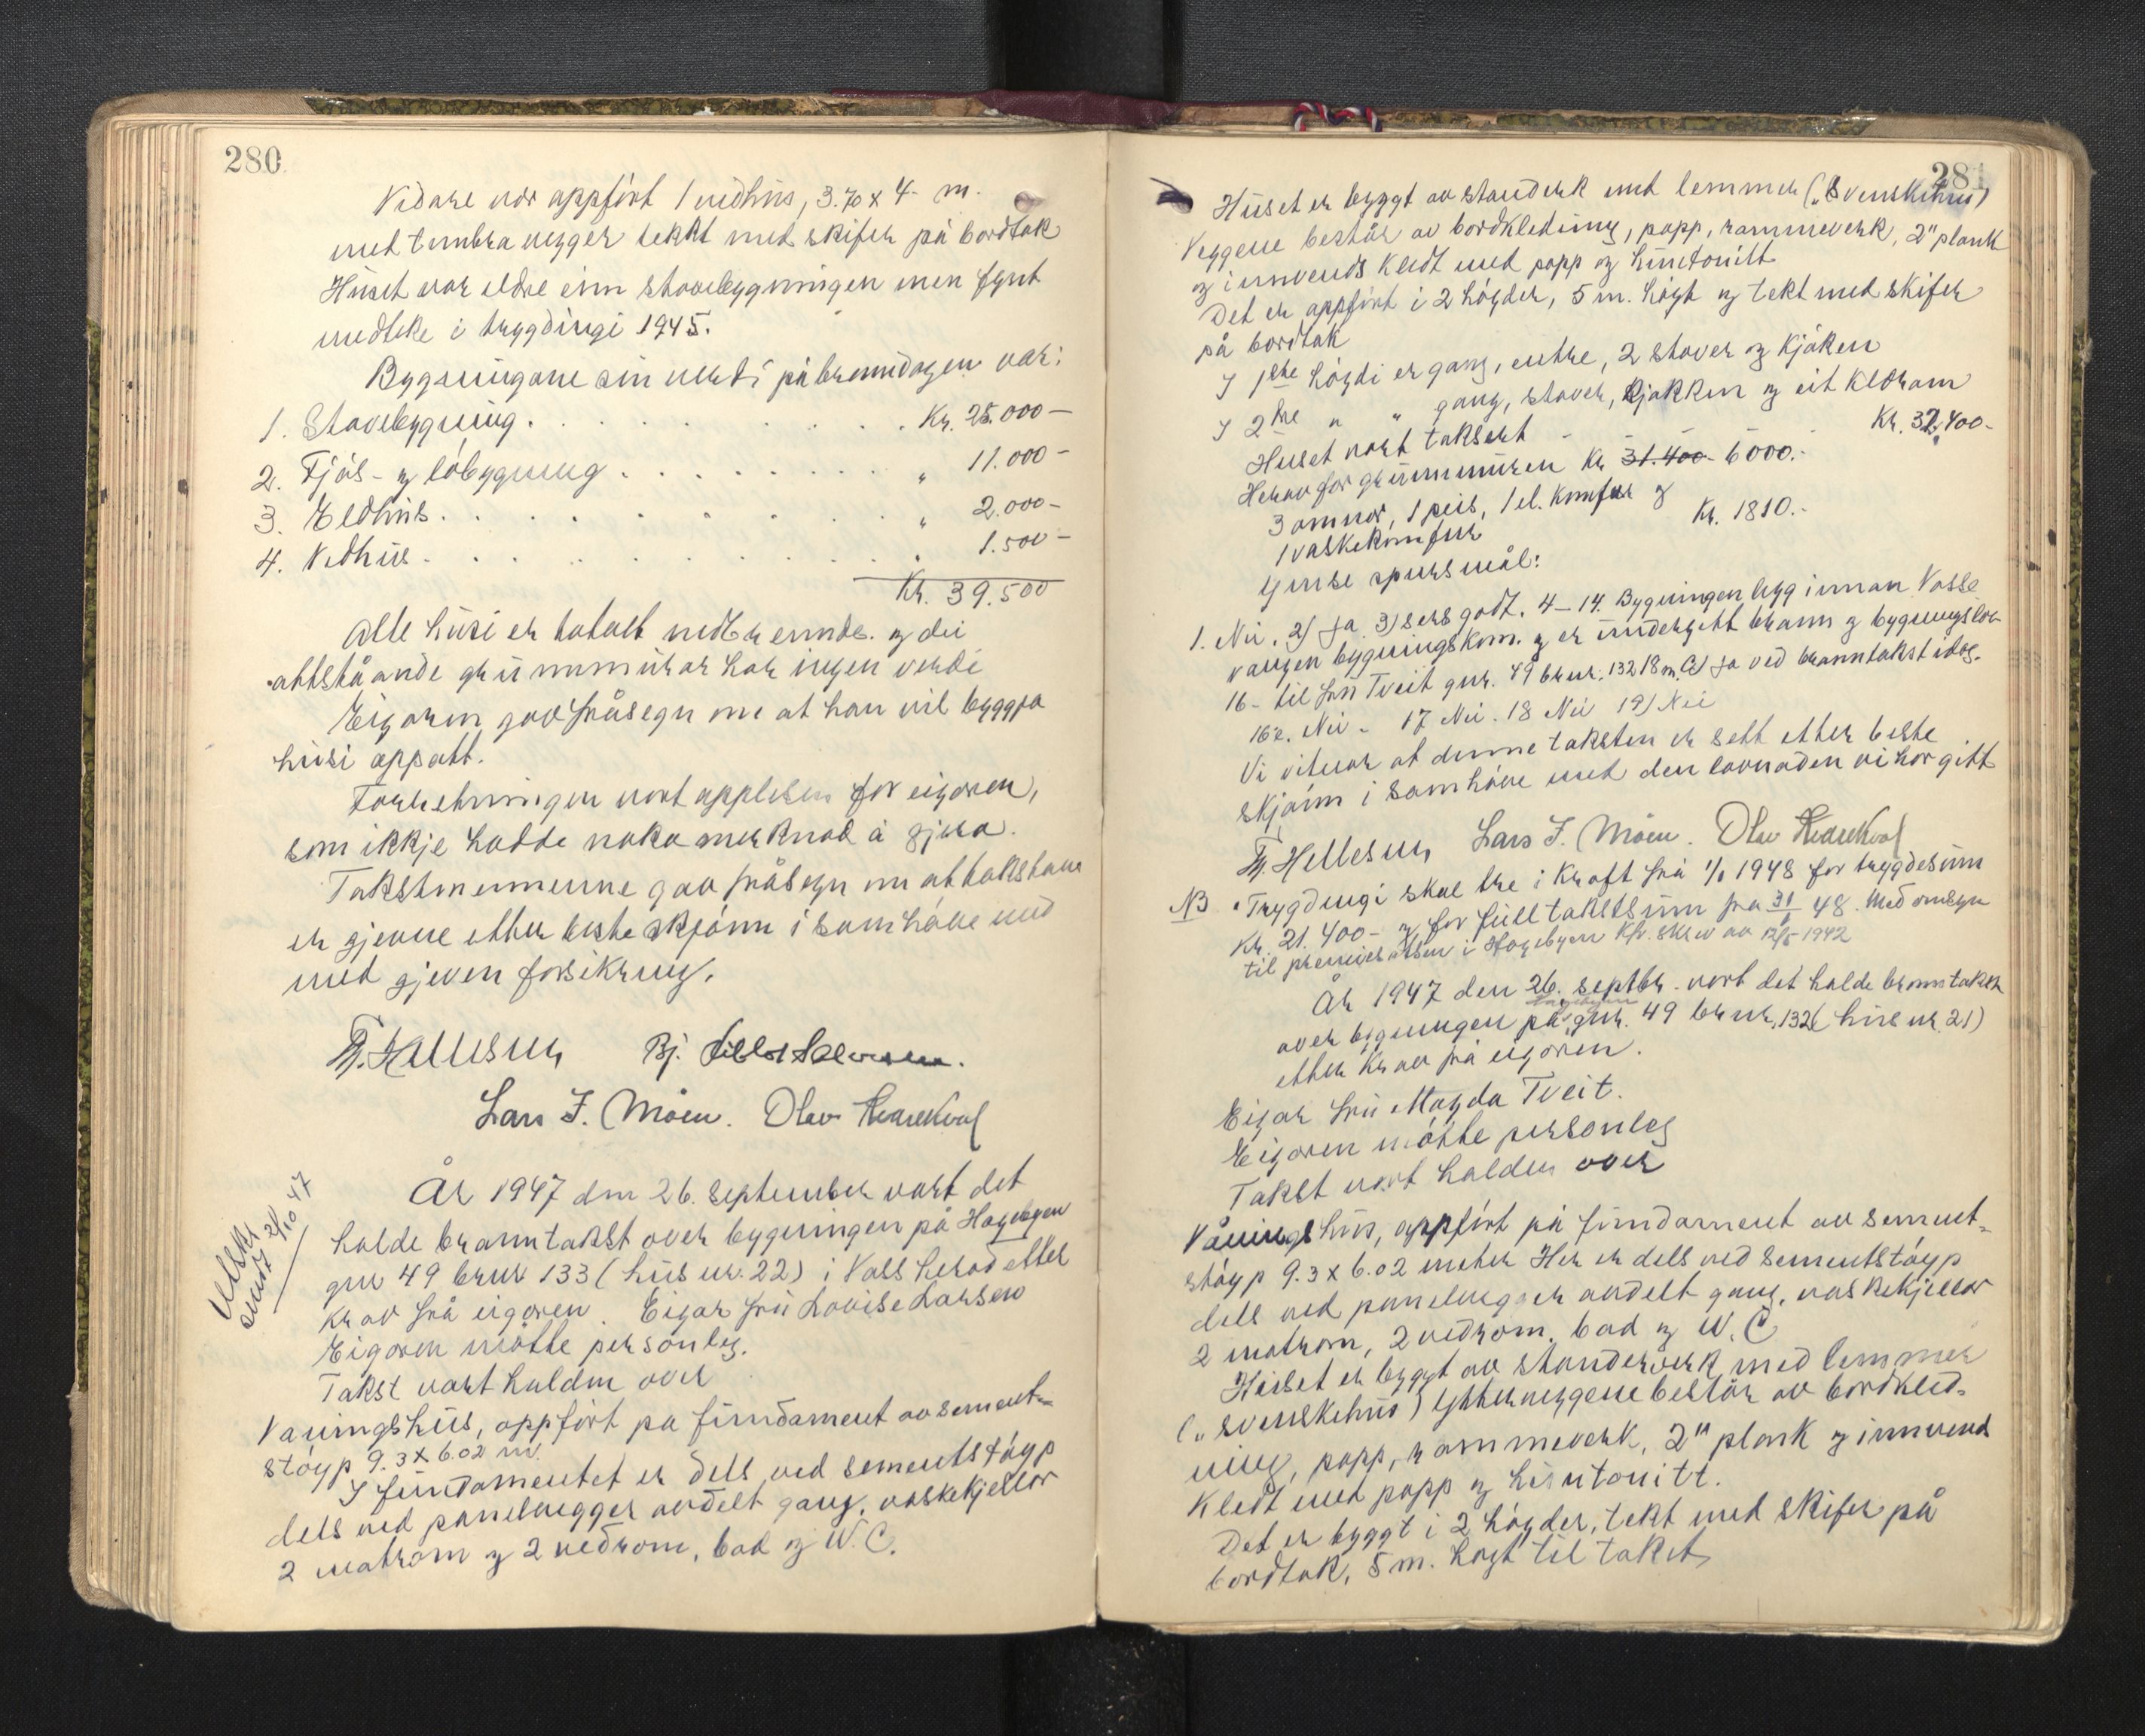 280
Vidare var oppført 1 vedhus, 3.70 x 4 m.
med timbra vegger tekkt med skifer på bordtak
Huset var eldre enn stovebygningen men fynt
medteke i trygdingi 1945.
Bygningane sin verdi på branndagen var:
1. Stovebygning . . . . . . . Kr. 25.000 —
2. Fjøs- og løbygning . . . . . . . " 11.000 —
3. Eldhus . . . . . . . " 2.000 —
4. Vedhus . . . . . . . " 1.500 —
Kr. 39.500
Alle husi er totalt nedbrennde. og dei
attståande grunnmurar har ingen verdi
Eigaren gav fråsegn om at han vil byggja
husi oppatt.
Forretningen vart opplesen for eigaren,
som ikkje hadde noko merknad å gjera.
Takstmennerne gav fråsegn om at takstane
er gjevne etter beste skjønn i samhøve med
med gjeven forsikring.
Hellesnes Bj.
Lars J. Møen. Olav
År 1947 den 26. september vart det
halde branntakst over bygningen på Hagebyen
gnr 49 brnr 133 (hus nr. 22) i Voss herad etter
krav frå eigaren. Eigar fru Lovise Larsen
Eigaren møtte personleg.
Takst vart halden over
Våningshus, oppført på fundament av sement-
støyp 9.3 x 6.02 m.
I fundamentet er dels ved sementstøyp
dels ved panelvegger avdelt gang, vaskekjellar
2 matrom og 2 vedrom, bad og W.C.
Utskr.
sendt 21/10 47
281
Huset er bygyt av standerk med lemmer („Svenskehus)
Veggene består av bordkledning, papp, rammeverk, 2" plank
og innvends kledt med papp og huntonitt
Det er oppført i 2 høgder, 5 m. høgt og tekt med skifer
på bordtak
I 1ste høgdi er gang, entre, 2 stover og kjøken
I 2dre " " gang, stover, kjøkken og eit kledrom
Huset vart taksert - - - Kr. 32,400-
Herav for grunnmuren Kr 31.400 - 6000.-
3 omnar, 1 peis, 1 el. komfur og
1 vaskekomfur Kr. 1810.-
Ymse spursmål:
1. Nei. 2) ja 3) sers godt. 4-14. Bygningen ligg innan Vosse
vangen bygningskom. og er undergitt brann og bygningslov
16- til fru Tveit gnr. 49 brnr. 132 18 m. ja ved branntakst idag.
16e. Nei - 17 Nei. 18 Nei 19) Nei
Vi vitnar at denne taksten er sett etter beste
skjønn i samhøve med den lovnaden vi har gitt
Hellesnes Lars J. Møen. Olav
NB Trygdingi skal tre i kraft frå 1/1 1948 for trygdesum
kr. 21.400- og for full takstsum fra 31/1 48. Med omsyn
til premiesatsen i Hagebyen kfr. skriv av 12/5 1942
År 1947 den 26. septbr. vart det halde branntakst
over bygningen på Hagebyen gnr. 49 brnr. 132 (hus nr. 21)
etter krav frå eigaren.
Eigar fru Magda Tveit.
Eigaren møtte personleg
Takst vart halden over
Våningshus, oppført på fundament av sement-
støyp 9.3 x 6.02 meter Her er dels ved sementstøyp
dels ved panelvegger avdelt gang, vaskekjellar
2 matrom, 2 vedrom, bad og W.C
Huset er bygyt av standerverk med lemmer
(„svenskehus) Ytterveggene består av bordkled-
ning, papp, rammeverk, 2" plank og innvend
kledt med papp og huntonitt.
Det er byggt i 2 høgder, tekt med skifer på
bordtak, 5 m. høgt til taket